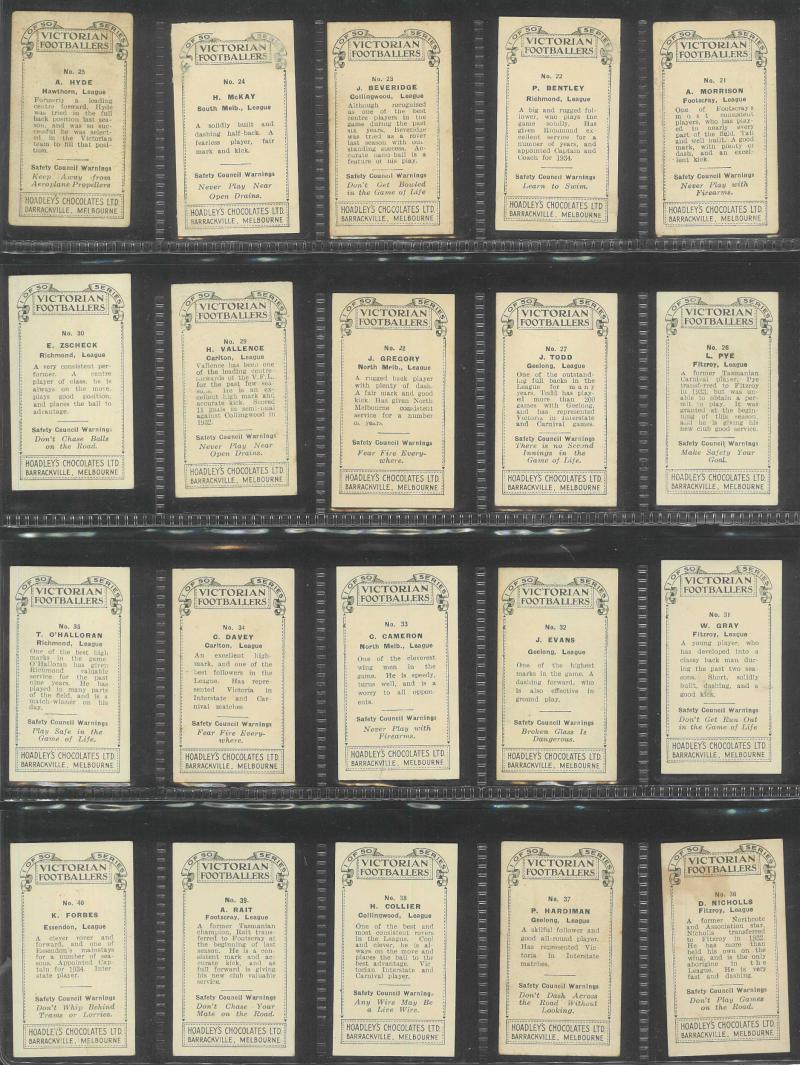 1 OF 50 SERIES
VICTORIAN
FOOTBALLERS
No. 25
A. HYDE
Hawthorn, League
Formerly a leading
centre forward, Hyde
was tried in the full
back position last sea-
son, and was so suc-
cessful he was select-
ed in the Victorian
team to fill that posi-
tion.
Safety Council Warnings
Keep Away from
Aeroplane Propellers
HOADLEY'S CHOCOLATES LTD.
BARRACKVILLE, MELBOURNE
1 OF 50 SERIES
VICTORIAN
FOOTBALLERS
No. 24
H. McKAY
South Melb., League
A solidly built and
dashing half-back. A
fearless player, fair
mark and kick.
Safety Council Warnings
Never Play Near
Open Drains.
HOADLEY'S CHOCOLATES LTD.
BARRACKVILLE, MELBOURNE
1 OF 50 SERIES
VICTORIAN
FOOTBALLERS
No. 23
J. BEVERIDGE
Collingwood, League
Although recognised
as one of the best
centre players in the
game during the past
six years, Beveridge
was tried as a rover
last season with out-
standing success. Ac-
curate hand-ball is a
feature of his play.
Safety Council Warnings
Don't Get Bowled
in the Game of Life
HOADLEY'S CHOCOLATES LTD.
BARRACKVILLE, MELBOURNE
1 OF 50 SERIES
VICTORIAN
FOOTBALLERS
No. 22
P. BENTLEY
Richmond, League
A big and rugged fol-
lower, who plays the
game solidly. Has
given Richmond ex-
cellent service for a
number of years, and
appointed Captain and
Coach for 1934.
Safety Council Warnings
Learn to Swim.
HOADLEY'S CHOCOLATES LTD.
BARRACKVILLE, MELBOURNE
1 OF 50 SERIES
VICTORIAN
FOOTBALLERS
No. 21
A. MORRISON
Footscray, League
One of Footscray's
most consistent
players, who has play-
ed in nearly every
part of the field. Tall
and well built. A good
mark, with plenty of
dash, and an excel-
lent kick.
Safety Council Warnings
Never Play with
Firearms.
HOADLEY'S CHOCOLATES LTD.
BARRACKVILLE, MELBOURNE
1 OF 50 SERIES
VICTORIAN
FOOTBALLERS
No. 30
E. ZSCHECK
Richmond, League
A very consistent per-
former. A centre
player of class, he is
always on the move,
plays good position,
and places the ball to
advantage.
Safety Council Warnings
Don't Chase Balls
on the Road.
HOADLEY'S CHOCOLATES LTD.
BARRACKVILLE, MELBOURNE
1 OF 50 SERIES
VICTORIAN
FOOTBALLERS
No. 29
H. VALLENCE
Carlton, League
Vallence has been one
of the leading centre
forwards of the V.F.L.
for the past few sea-
sons. He is an ex-
cellent high mark and
accurate kick. Scored
11 goals in semi-final
against Collingwood in
1932.
Safety Council Warnings
Never Play Near
Open Drains.
HOADLEY'S CHOCOLATES LTD.
BARRACKVILLE, MELBOURNE
1 OF 50 SERIES
VICTORIAN
FOOTBALLERS
No. 28
J. GREGORY
North Melb., League
A rugged back player
with plenty of dash.
A fair mark and good
kick. Has given North
Melbourne consistent
service for a number
of years.
Safety Council Warnings
Fear Fire Every-
where.
HOADLEY'S CHOCOLATES LTD.
BARRACKVILLE, MELBOURNE
1 OF 50 SERIES
VICTORIAN
FOOTBALLERS
No. 27
J. TODD
Geelong, League
One of the outstand-
ing full backs in the
League for many
years, Todd has play-
ed more than 200
games with Geelong,
and has represented
Victoria in Interstate
and Carnival games.
Safety Council Warnings
There is no Second
Innings in the
Game of Life.
HOADLEY'S CHOCOLATES LTD.
BARRACKVILLE, MELBOURNE
1 OF 50 SERIES
VICTORIAN
FOOTBALLERS
No. 26
L. PYE
Fitzroy, League
A former Tasmanian
Carnival player, Pye
transferred to Fitzroy
in 1933, but was un-
able to obtain a per-
mit to play. It was
granted at the begin-
ning of this season,
and he is giving his
new club good service.
Safety Council Warnings
Make Safety Your
Goal.
HOADLEY'S CHOCOLATES LTD.
BARRACKVILLE, MELBOURNE
1 OF 50 SERIES
VICTORIAN
FOOTBALLERS
No. 35
T. O'HALLORAN
Richmond, League
One of the best high
marks in the game.
O'Halloran has given
Richmond valuable
service for the past
nine years. He has
played in many parts
of the field, and is a
match-winner on his
day.
Safety Council Warnings
Play Safe in the
Game of Life.
HOADLEY'S CHOCOLATES LTD.
BARRACKVILLE, MELBOURNE
1 OF 50 SERIES
VICTORIAN
FOOTBALLERS
No. 34
C. DAVEY
Carlton, League
An excellent high-
mark, and one of the
best followers in the
League. Has repre-
sented Victoria in
Interstate and Car-
nival matches
Safety Council Warnings
Fear Fire Every-
where.
HOADLEY'S CHOCOLATES LTD.
BARRACKVILLE, MELBOURNE
1 OF 50 SERIES
VICTORIAN
FOOTBALLERS
No. 33
C. CAMERON
North Melb., League
One of the cleverest
wing men in the
game. He is speedy,
turns well, and is a
worry to all oppon-
ents.
Safety Council Warnings
Never Play with
Firearms.
HOADLEY'S CHOCOLATES LTD.
BARRACKVILLE, MELBOURNE
1 OF 50 SERIES
VICTORIAN
FOOTBALLERS
No. 32
J. EVANS
Geelong, League
One of the highest
marks in the game. A
dashing forward, who
is also effective in
ground play.
Safety Council Warnings
Broken Glass Is
Dangerous.
HOADLEY'S CHOCOLATES LTD.
BARRACKVILLE, MELBOURNE
1 OF 50 SERIES
VICTORIAN
FOOTBALLERS
No. 31
W. GRAY
Fitzroy, League
A young player, who
has developed into a
classy back man dur-
ing the past two sea-
sons. Short, solidly
built, dashing, and a
good kick.
Safety Council Warnings
Don't Get Run Out
in the Game of Life
HOADLEY'S CHOCOLATES LTD.
BARRACKVILLE, MELBOURNE
1 OF 50 SERIES
VICTORIAN
FOOTBALLERS
No. 40
K. FORBES
Essendon, League
A clever rover and
forward, and one of
Essendon's mainstays
for a number of sea-
sons. Appointed Cap-
tain for 1934. Inter
state player.
Safety Council Warnings
Don't Whip Behind
Trams or Lorries.
HOADLEY'S CHOCOLATES LTD.
BARRACKVILLE, MELBOURNE
1 OF 50 SERIES
VICTORIAN
FOOTBALLERS
No. 39.
A. RAIT
Footscray, League
A former Tasmanian
champion, Rait trans-
ferred to Footscray at
the beginning of last
season. He is a con-
sistent mark and ac-
curate kick, and as
full forward is giving
his new club valuable
service.
Safety Council Warnings
Don't Chase Your
Mate on the Road.
HOADLEY'S CHOCOLATES LTD.
BARRACKVILLE, MELBOURNE
1 OF 50 SERIES
VICTORIAN
FOOTBALLERS
No. 38
H. COLLIER
Collingwood, League
One of the best and
most consistent rovers
in the League. Cool
and clever, he is al-
ways on the move and
places the ball to the
best advantage. Vic-
torian Interstate and
Carnival player.
Safety Council Warnings
Any Wire May Be
a Live Wire.
HOADLEY'S CHOCOLATES LTD.
BARRACKVILLE, MELBOURNE
1 OF 50 SERIES
VICTORIAN
FOOTBALLERS
No. 37
P. HARDIMAN
Geelong, League
A skilful follower and
good all-round player.
Has represented Vic-
toria in Interstate
matches.
Safety Council Warnings
Don't Dash Across
the Road Without
Looking.
HOADLEY'S CHOCOLATES LTD.
BARRACKVILLE, MELBOURNE
1 OF 50 SERIES
VICTORIAN
FOOTBALLERS
No. 36
D. NICHOLLS
Fitzroy, League
A former Northcote
and Association star,
Nicholls transferred
to Fitzroy in 1932.
He has more than
held his own on the
wing, and is the only
aborigine in the
League. He is very
fast and dashing.
Safety Council Warnings
Don't Play Games
on the Road.
HOADLEY'S CHOCOLATES LTD.
BARRACKVILLE, MELBOURNE